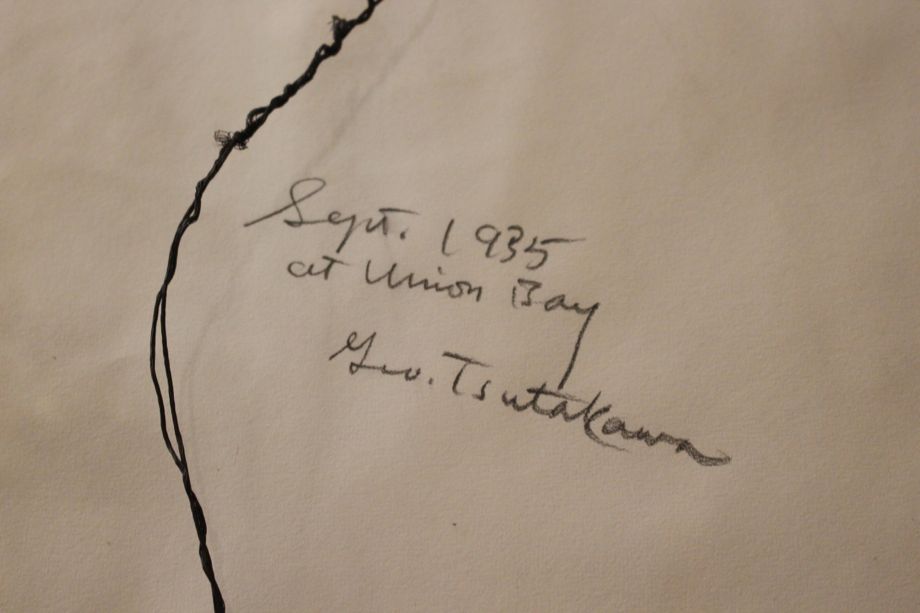 Sept. 1935
at Union Bay
Geo. Tsutakawa